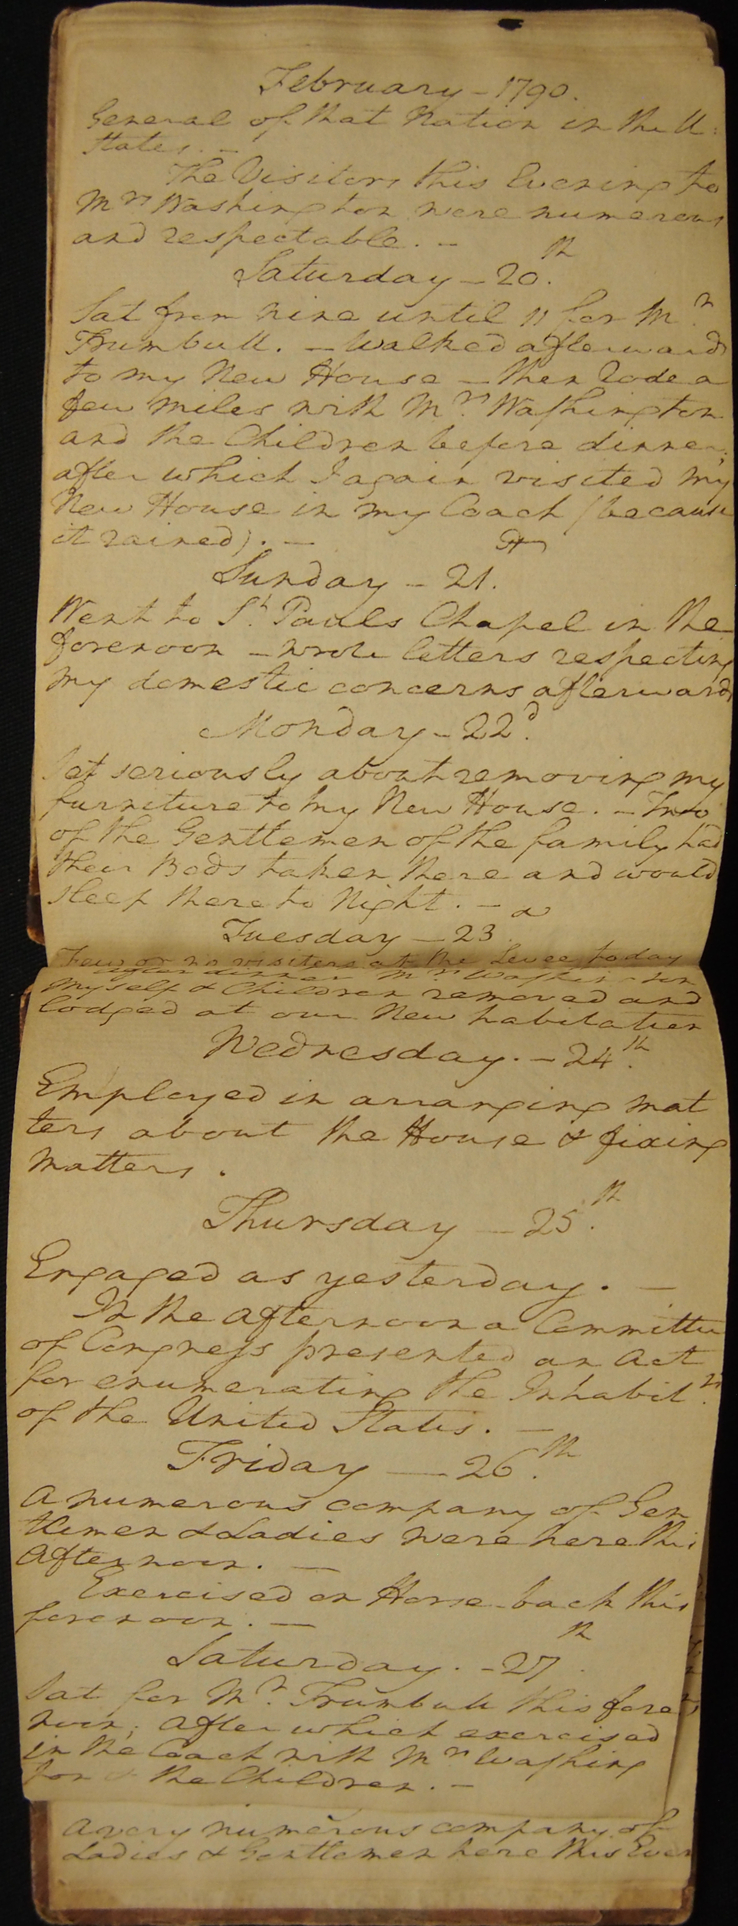 February - 1790.
General of that Nation in the U:
States. -
The Visitors this Evening to
Mrs. Washington were numerous
and respectable. -
Saturday - 20.th
Sat from nine until 11 for Mr.
Trumbull. - Walked afterwards
to my New House - then rode a
few miles with Mrs. Washington
and the Children before dinner;
after which I again visited my
New House in my Coach (because
it rained). -
Sunday - 21.st
Went to St. Pauls Chapel in the
forenoon - wrote letters respecting
my domestic concerns afterwards
Monday - 22.d
Set seriously about removing my
furniture to my New House. - Two
of the Gentlemen of the family had
their Beds taken there and would
sleep there to Night. -
Tuesday - 23.d
Few or no visitors at the Levee today
after dinner Mrs. Washington
myself & Children removed and
lodged at our New habitation
Wednesday. - 24.th
Employed in arranging mat
ters about the House & fixing
matters.
Thursday - 25.th
Engaged as yesterday. -
In the afternoon a Committee
of Congress presented an Act
for enumerating the Inhabits.
of the United States. -
Friday - 26.th
A numerous company of Gen
tlemen & Ladies were here this
Afternoon. -
Exercised on Horse-back this
forenoon. -
Saturday. - 27.th
Sat for Mr. Trumbull this fore
noon; after which exercised
in the Coach with Mrs Washing
ton & the Children. -
A very numerous company of
Ladies & Gentlemen here this Even